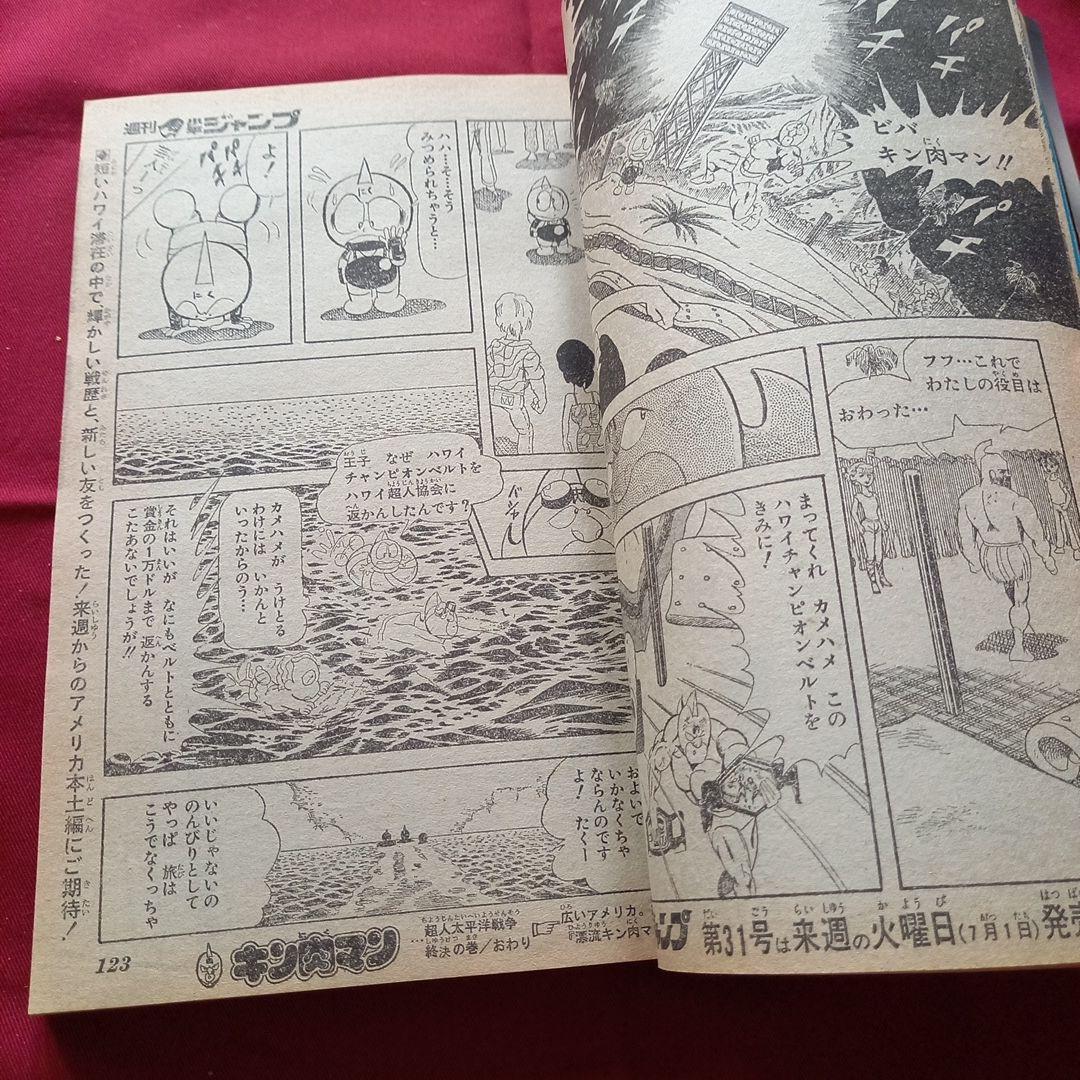 パチ
パチ
パチ
ビバ
キン肉マン!!
フフ…これで
わたしの役目は
おわった…
まってくれ カメハメ この
ハワイチャンピオンベルトを
きみに!
ジャンプ 第31号は来週の火曜日(7月1日)発売
週刊少年ジャンプ
ハハ…そ…そう
みつめられちゃうと…
よ!
バシャー
王子 なぜ ハワイ
チャンピオンベルトを
ハワイ超人協会に
返かんしたんです?
カメハメが うけとる
わけには いかんと
いったからのう…
それはいいが なにもベルトとともに
賞金の1万ドルまで 返かんする
こたあないでしょうが!!
およいで
いかなくちゃ
ならんのです
よ! たくー
いいじゃないの
のんびりとして
やっぱ 旅は
こうでなくっちゃ
短いハワイ滞在の中で、輝かしい戦歴と、新しい友をつくった!来週からのアメリカ本土編にご期待!
123
キン肉マン
超人太平洋戦争
…終決の巻/おわり
広いアメリカ。
『漂流キン肉マ